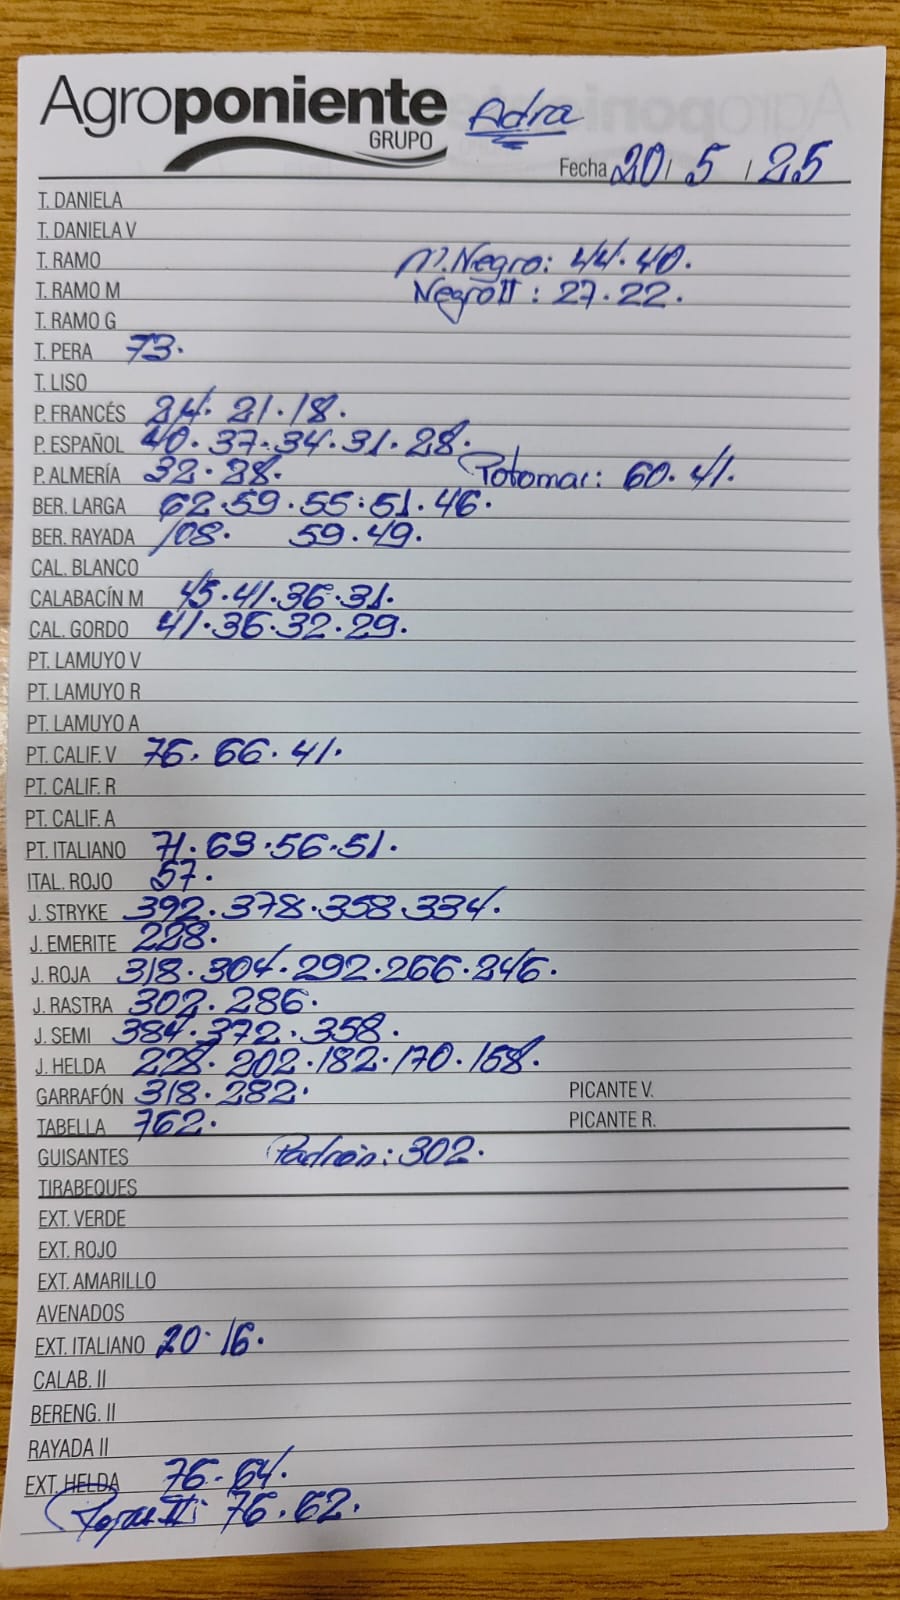 Agroponiente
GRUPO
Adra
Fecha 20/ 5 / 25
T. DANIELA
T. DANIELA V
T. RAMO M.Negro: 44.40.
T. RAMO M Negro II: 27.22.
T. RAMO G
T. PERA 73.
T. LISO
P. FRANCÉS 24. 21.18.
P. ESPAÑOL 40.37.34.31.28.
P. ALMERÍA 32.28. Potomac: 60.41.
BER. LARGA 62.59.55:51.46.
BER. RAYADA 108. 59.49.
CAL. BLANCO
CALABACÍN M 45.41.36.31.
CAL. GORDO 41.36.32.29.
PT. LAMUYO V
PT. LAMUYO R
PT. LAMUYO A
PT. CALIF. V 76. 66. 41.
PT. CALIF. R
PT. CALIF. A
PT. ITALIANO 71.63.56.51.
ITAL. ROJO 57.
J. STRYKE 392.378.358.334.
J. EMERITE 228.
J. ROJA 318.304.292.266.246.
J. RASTRA 302.286.
J. SEMI 384.372.358.
J. HELDA 228.202.182.170.158.
GARRAFÓN 318.282. PICANTE V.
TABELLA 762. PICANTE R.
GUISANTES Padrón: 302.
TIRABEQUES
EXT. VERDE
EXT. ROJO
EXT. AMARILLO
AVENADOS
EXT. ITALIANO 20.16.
CALAB. II
BERENG. II
RAYADA II
EXT. HELDA 76-64.
II: 76.62.